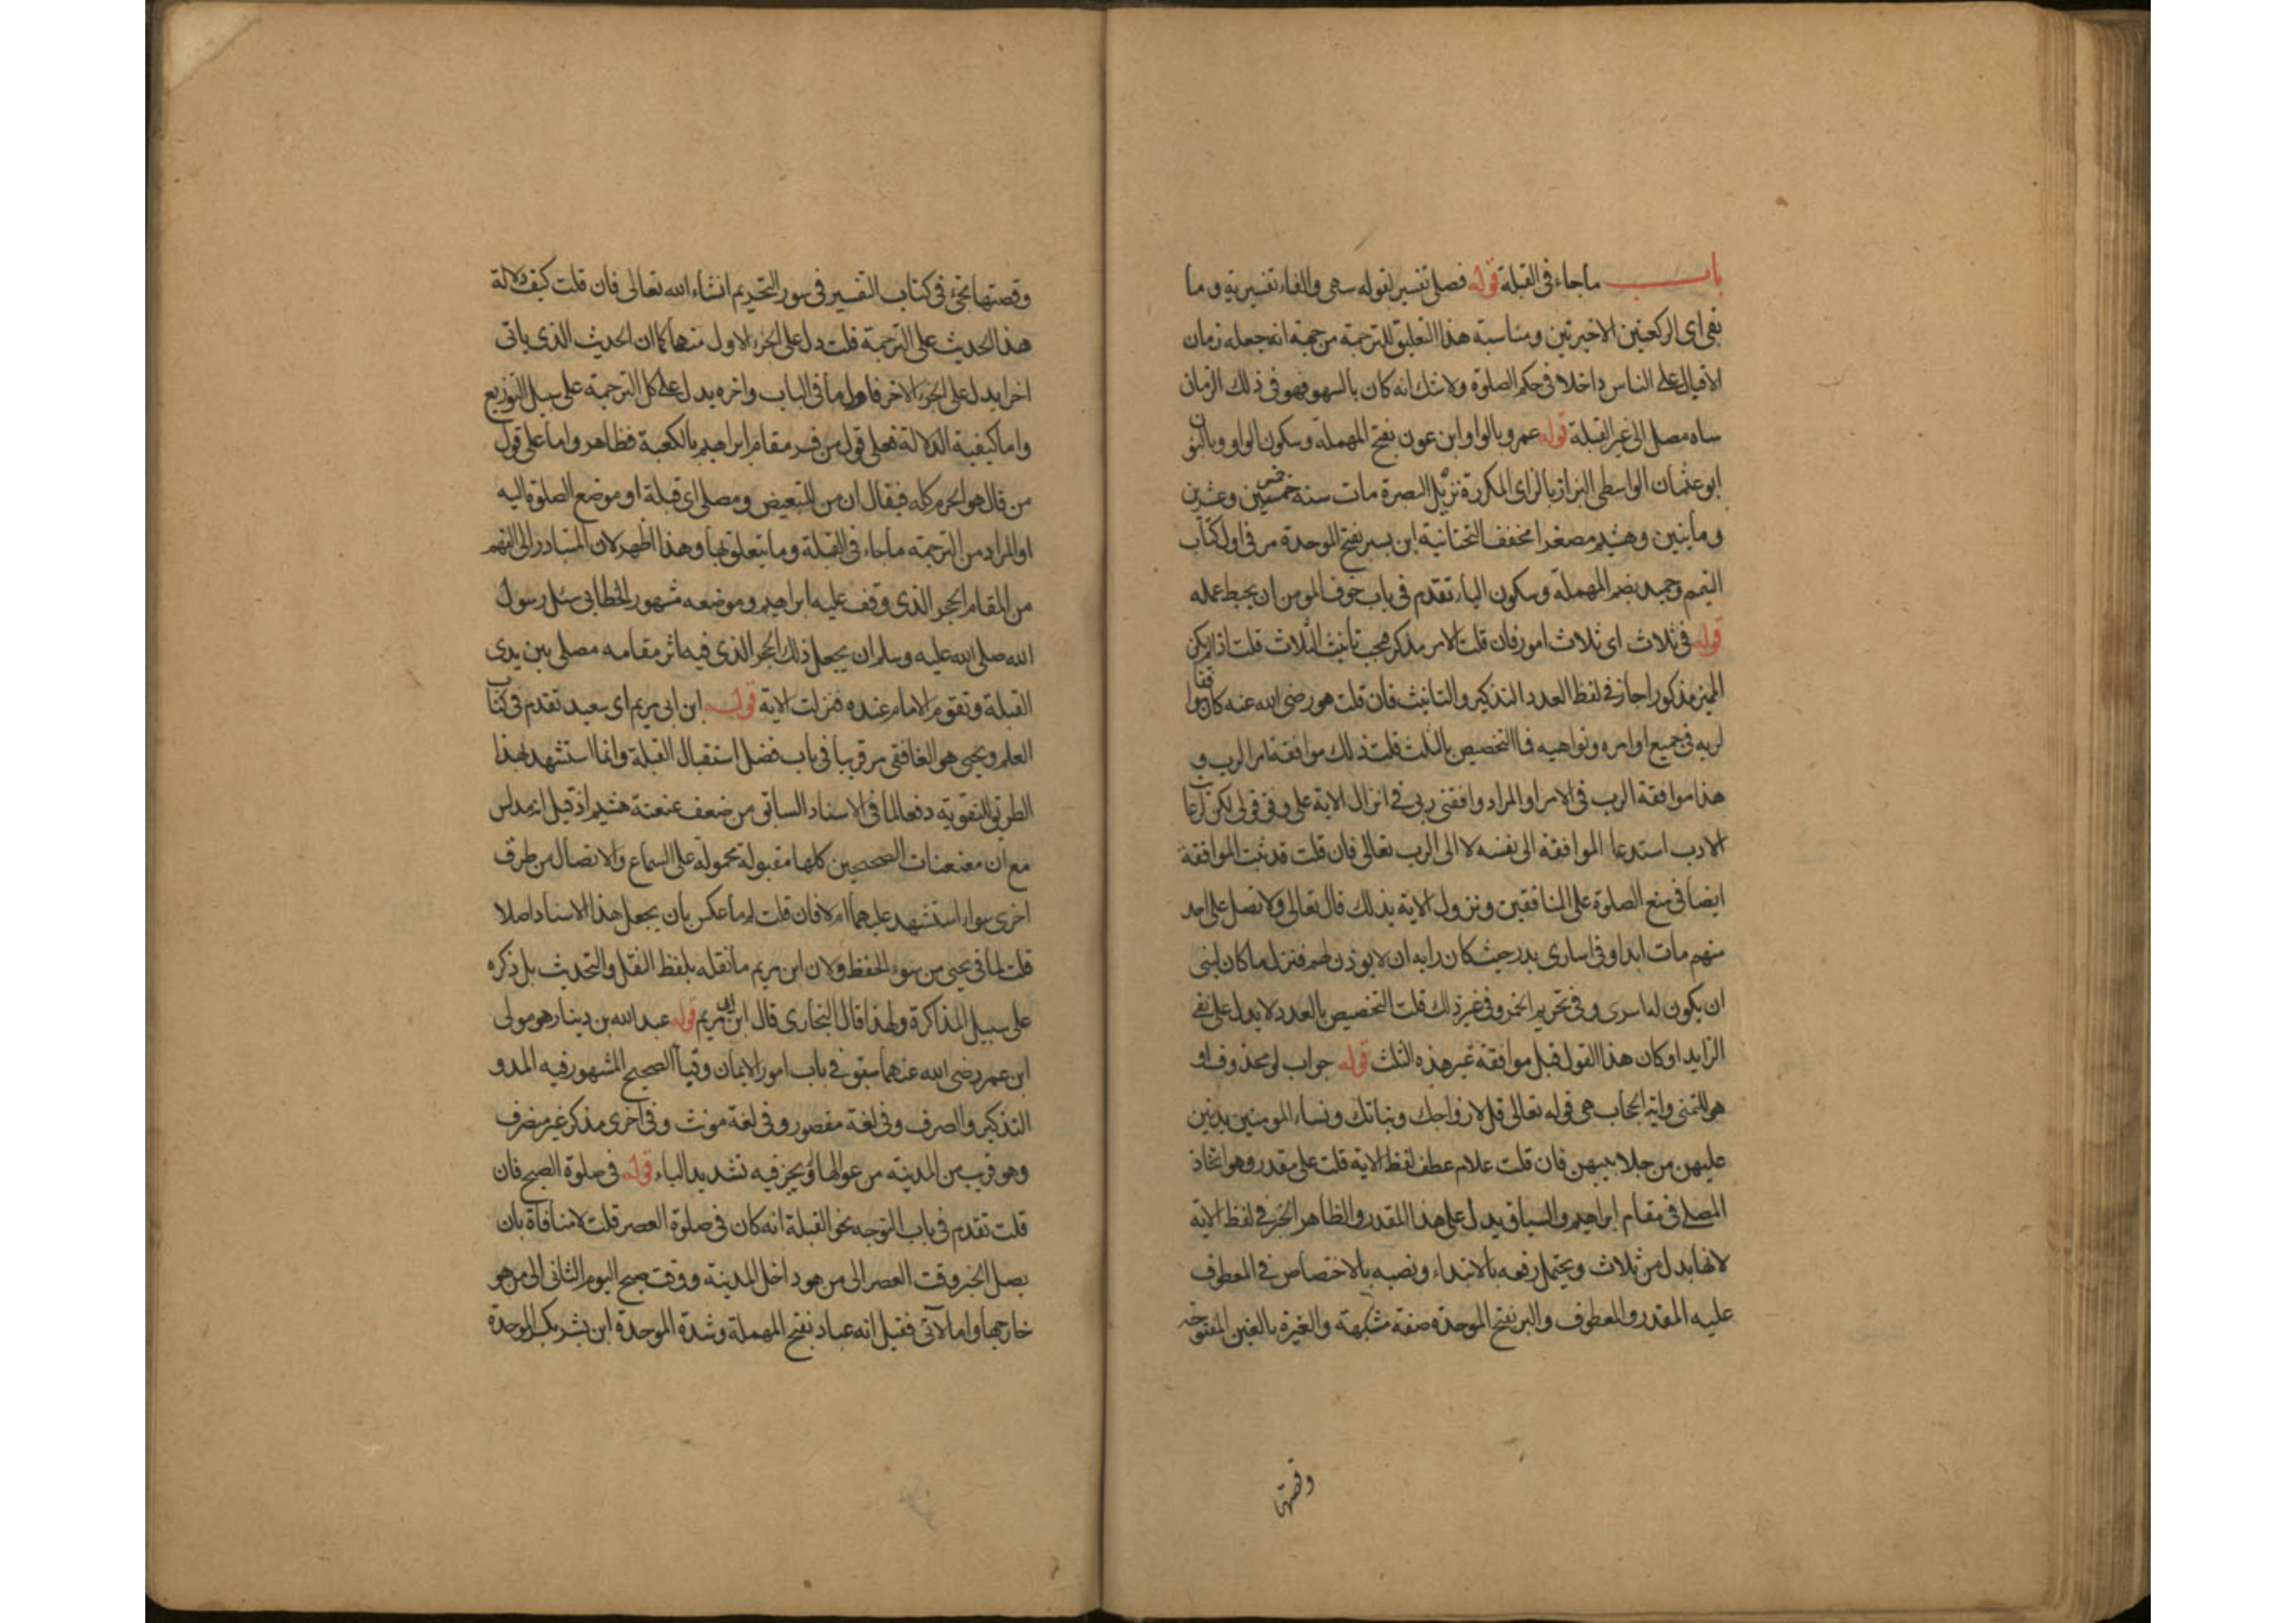 باب ماجاء فى القبلة قوله فصلى تفسير لقوله سهى والفاء تفسيرية وما
بقى اى الركعتين الاخيرتين ومناسبة هذا التعليق للترجمة من جهة انه جعله زمان
الاقبال على الناس داخلا فى حكم الصلوة ولا شك انه كان بالسهو فهو فى ذلك الزمان
ساه مصل الى غير القبلة قوله عمرو بالواو ابن عون بفتح المهملة وسكون الواو وبالنون
ابو عثمان الواسطى البزاز بالزاى المكررة نزيل البصرة مات سنة خمس وعشرين
ومأيتين وهشيم مصغرا مخفف التحتانية ابن بسير بفتح الموحدة مر فى اول كتاب
التيمم وحميد بضم المهملة وسكون الياء تقدم فى باب خوف المومن ان يحبط عمله
قوله فى ثلاث اى ثلاث امور فان قلت الامر مذكر فيجب تأنيث الثلاث قلت اذا لم يكن
المميز مذكورا جاز فى لفظ العدد التذكير والتانيث فان قلت هو رضى الله عنه كان موافقا
لربه فى جميع اوامره ونواهيه فما التخصيص بالثلث قلت ذلك موافقة امر الرب و
هذا موافقة الرب فى الامر او المراد وافقنى ربى فى انزال الاية على وفق قولى لكن لرعاية
الادب استدعا الموافقة الى نفسه لا الى الرب تعالى فان قلت قد ثبت الموافقة
ايضا فى منع الصلوة على المنافقين ونزول الاية بذلك قال تعالى ولا تصل على احد
منهم مات ابدا وفى اسارى بدر حيث كان رايه ان لا يوذن لهم فنزل ما كان لنبى
ان يكون له اسرى وفى تحريم الخمر وفى غير ذلك قلت التخصيص بالعدد لا يدل على نفى
الزايد او كان هذا القول قبل موافقة غير هذه الثلث قوله جواب لو محذوف او
هو للتمنى واية الحجاب هى قوله تعالى قل لازواجك وبناتك ونساء المومنين يدنين
عليهن من جلابيبهن فان قلت علام عطف لفظ الاية قلت على مقدر وهو اتخاذ
المصلى فى مقام ابراهيم والسياق يدل على هذا المقدر والظاهر الجر فى لفظ الاية
لانها بدل من ثلاث ويحتمل رفعه بالابتداء ونصبه بالاختصاص فى المعطوف
عليه المقدر والمعطوف والبر بفتح الموحدة صفة مشبهة والغيرة بالغين المفتوحة
وقصتها
وقصتها تجئ فى كتاب التفسير فى سورة التحريم انشاء الله تعالى فان قلت كيف دلالة
هذا الحديث على الترجمة قلت دل على الجزء الاول منها كما ان الحديث الذى ياتى
اخرا يدل على الجزء الاخر فاول ما فى الباب واخره يدل على كل الترجمة على سبيل التوزيع
واما كيفية الدلالة فعلى قول من فسر مقام ابراهيم بالكعبة فظاهر واما على قول
من قال هو الحرم كله فيقال ان من للتبعيض ومصلى اى قبلة او موضع الصلوة اليه
او المراد من الترجمة ما جاء فى القبلة وما يتعلق بها وهذا اظهر لان المتبادر الى الفهم
من المقام الحجر الذى وقف عليه ابراهيم وموضعه مشهور الخطابى سئل رسول
الله صلى الله عليه وسلم ان يجعل ذلك الحجر الذى فيه اثر مقامه مصلى بين يدى
القبلة وتقوم الامام عنده فنزلت الاية قوله ابن ابى مريم اى سعيد تقدم فى كتاب
العلم ويحيى هو الغافقى مر قريبا فى باب فضل استقبال القبلة وانما استشهد بهذا
الطريق للتقوية دفعا لما فى الاسناد السابق من ضعف عنعنة هشيم اذ قيل انه مدلس
مع ان معنعنات الصحيحين كلها مقبولة محمولة على السماع والاتصال من طرف
اخرى سواء استشهد عليهما ام لا فان قلت لم ما عكس بان يجعل هذا الاسناد اصلا
قلت لما فى يحيى من سوء الحفظ ولان ابن مريم ما نقله بلفظ النقل والتحديث بل ذكره
على سبيل المذاكرة ولهذا قال البخارى قال ابن ابى مريم قوله عبد الله بن دينار هو مولى
ابن عمر رضى الله عنهما سبق فى باب امور الايمان وقبا الصحيح المشهور فيه المد و
التذكير والصرف وفى لغة مقصور وفى لغة مونث وفى اخرى مذكر غير منصرف
وهو قريب من المدينة من عواليها قوله فى صلوة الصبح فان
قلت تقدم فى باب التوجه نحو القبلة انه كان فى صلوة العصر قلت لا منافاة بان
يصل الخبر وقت العصر الى من هو داخل المدينة ووقت صبح اليوم الثانى الى من هو
خارجها واما الآتى فقيل انه عباد بفتح المهملة وشدة الموحدة ابن بشر بكسر الموحدة